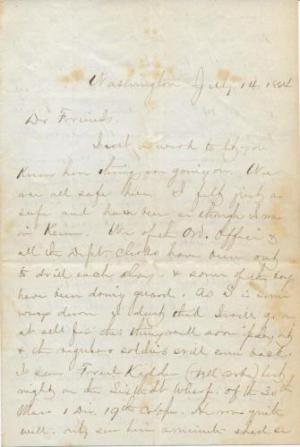 Washington July 14, 1864
Dr Friends.
I sent word to let you
know how things are going on. We
are all safe here. I felt just as
safe and have here as though I was
in Keene. We of the Ord. Office &
all the Dept. Clerks have been out
to drill each day, & some of the boys
have been doing guard. As I is some
ways down I don't think I will go
at all for this thing will soon play out
& the regular soldiers will come back.
I saw Frank Kidder last
night on the Sixth St Wharf. of the 30th
Mass 1 Div. 19th Corps. He was quite
well. only saw him a minute